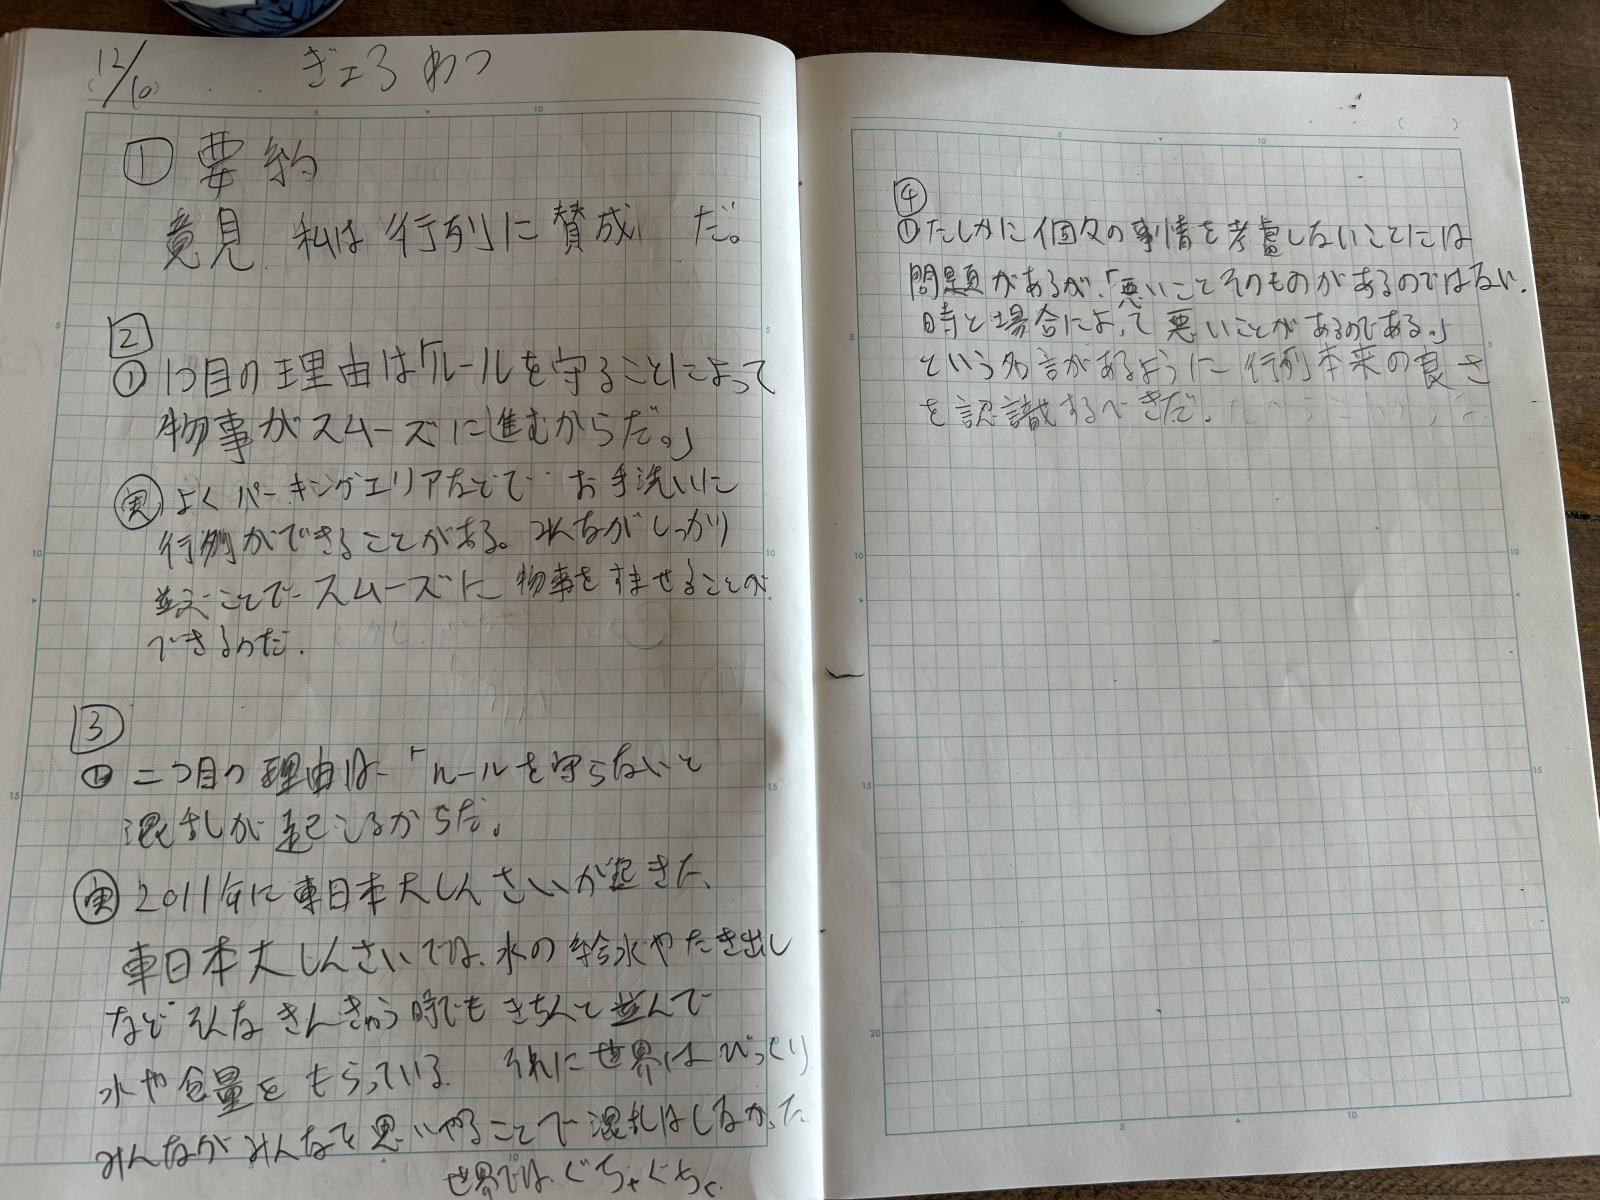 12/10 ぎょうれつ
① 要約
意見 私は行列に賛成 だ。
2
① 1つ目の理由は「ルールを守ることによって
物事がスムーズに進むからだ。」
実 よくパーキングエリアなどで お手洗いに
行列ができることがある。みんながしっかり
並ぶことでスムーズに物事をすませることが
できるのだ.
3
① 二つ目の理由は「ルールを守らないと
混乱が起こるからだ。
実 2011年に東日本大しんさいが起きた、
東日本大しんさいでは、水の給水やたき出し
などそんなきんきゅう時でもきちんと並んで
水や食量をもらっている. それに世界はびっくり
みんながみんなを思いやることで混乱はしなかった
世界では、ぐちゃぐちゃ
④
① たしかに個々の事情を考慮しないことには
問題があるが、「悪いことそのものがあるのではない.
時と場合によって悪いことがあるのである。」
という名言があるように行列本来の良さ
を認識するべきだ.